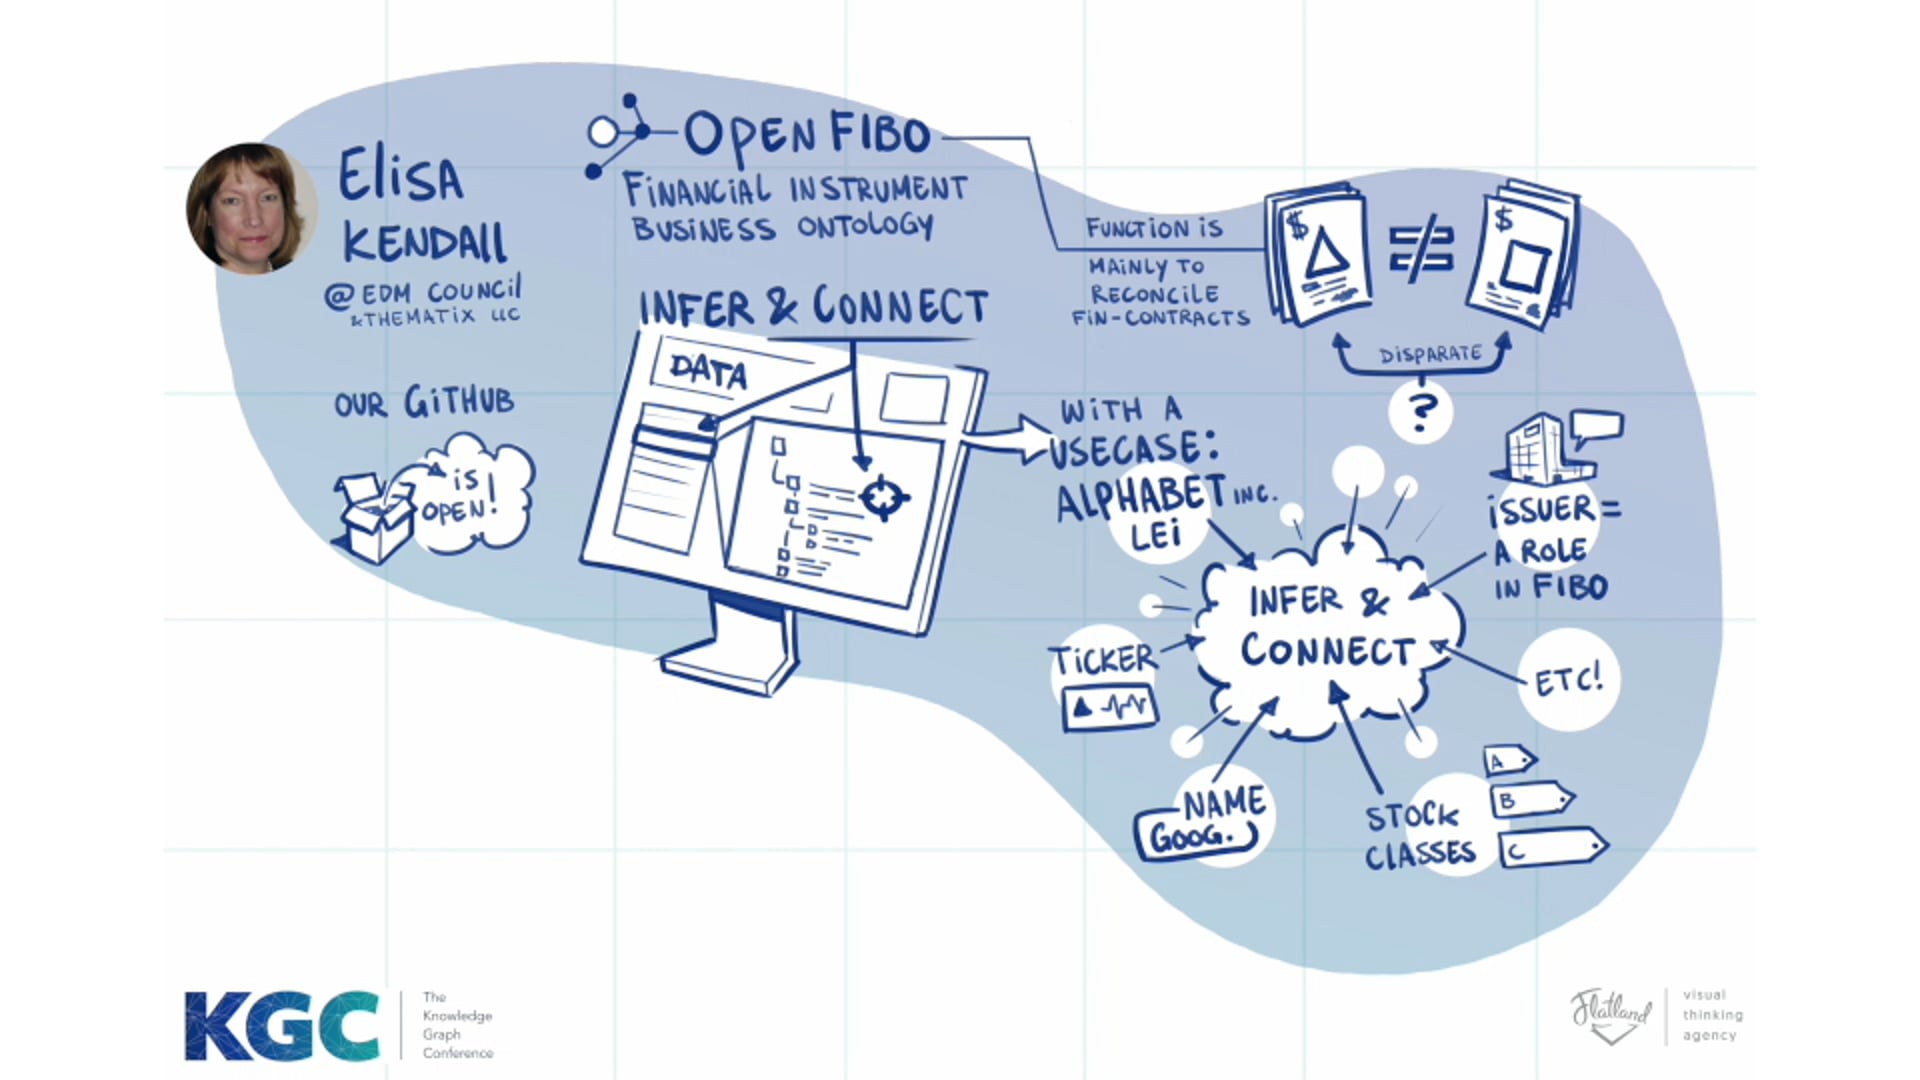 Elisa
Kendall
@ EDM Council
& Thematix LLC
Our GitHub
is
open!
Open FIBO
Financial Instrument
Business Ontology
Infer & Connect
Data
Function is
mainly to
reconcile
fin-contracts
$
≠
$
Disparate
?
With a
usecase:
Alphabet Inc.
LEI
Issuer =
a role
in FIBO
Infer &
Connect
Ticker
Etc!
Name
Goog.
Stock
classes
A
B
C
KGC
The
Knowledge
Graph
Conference
Flatland
visual
thinking
agency